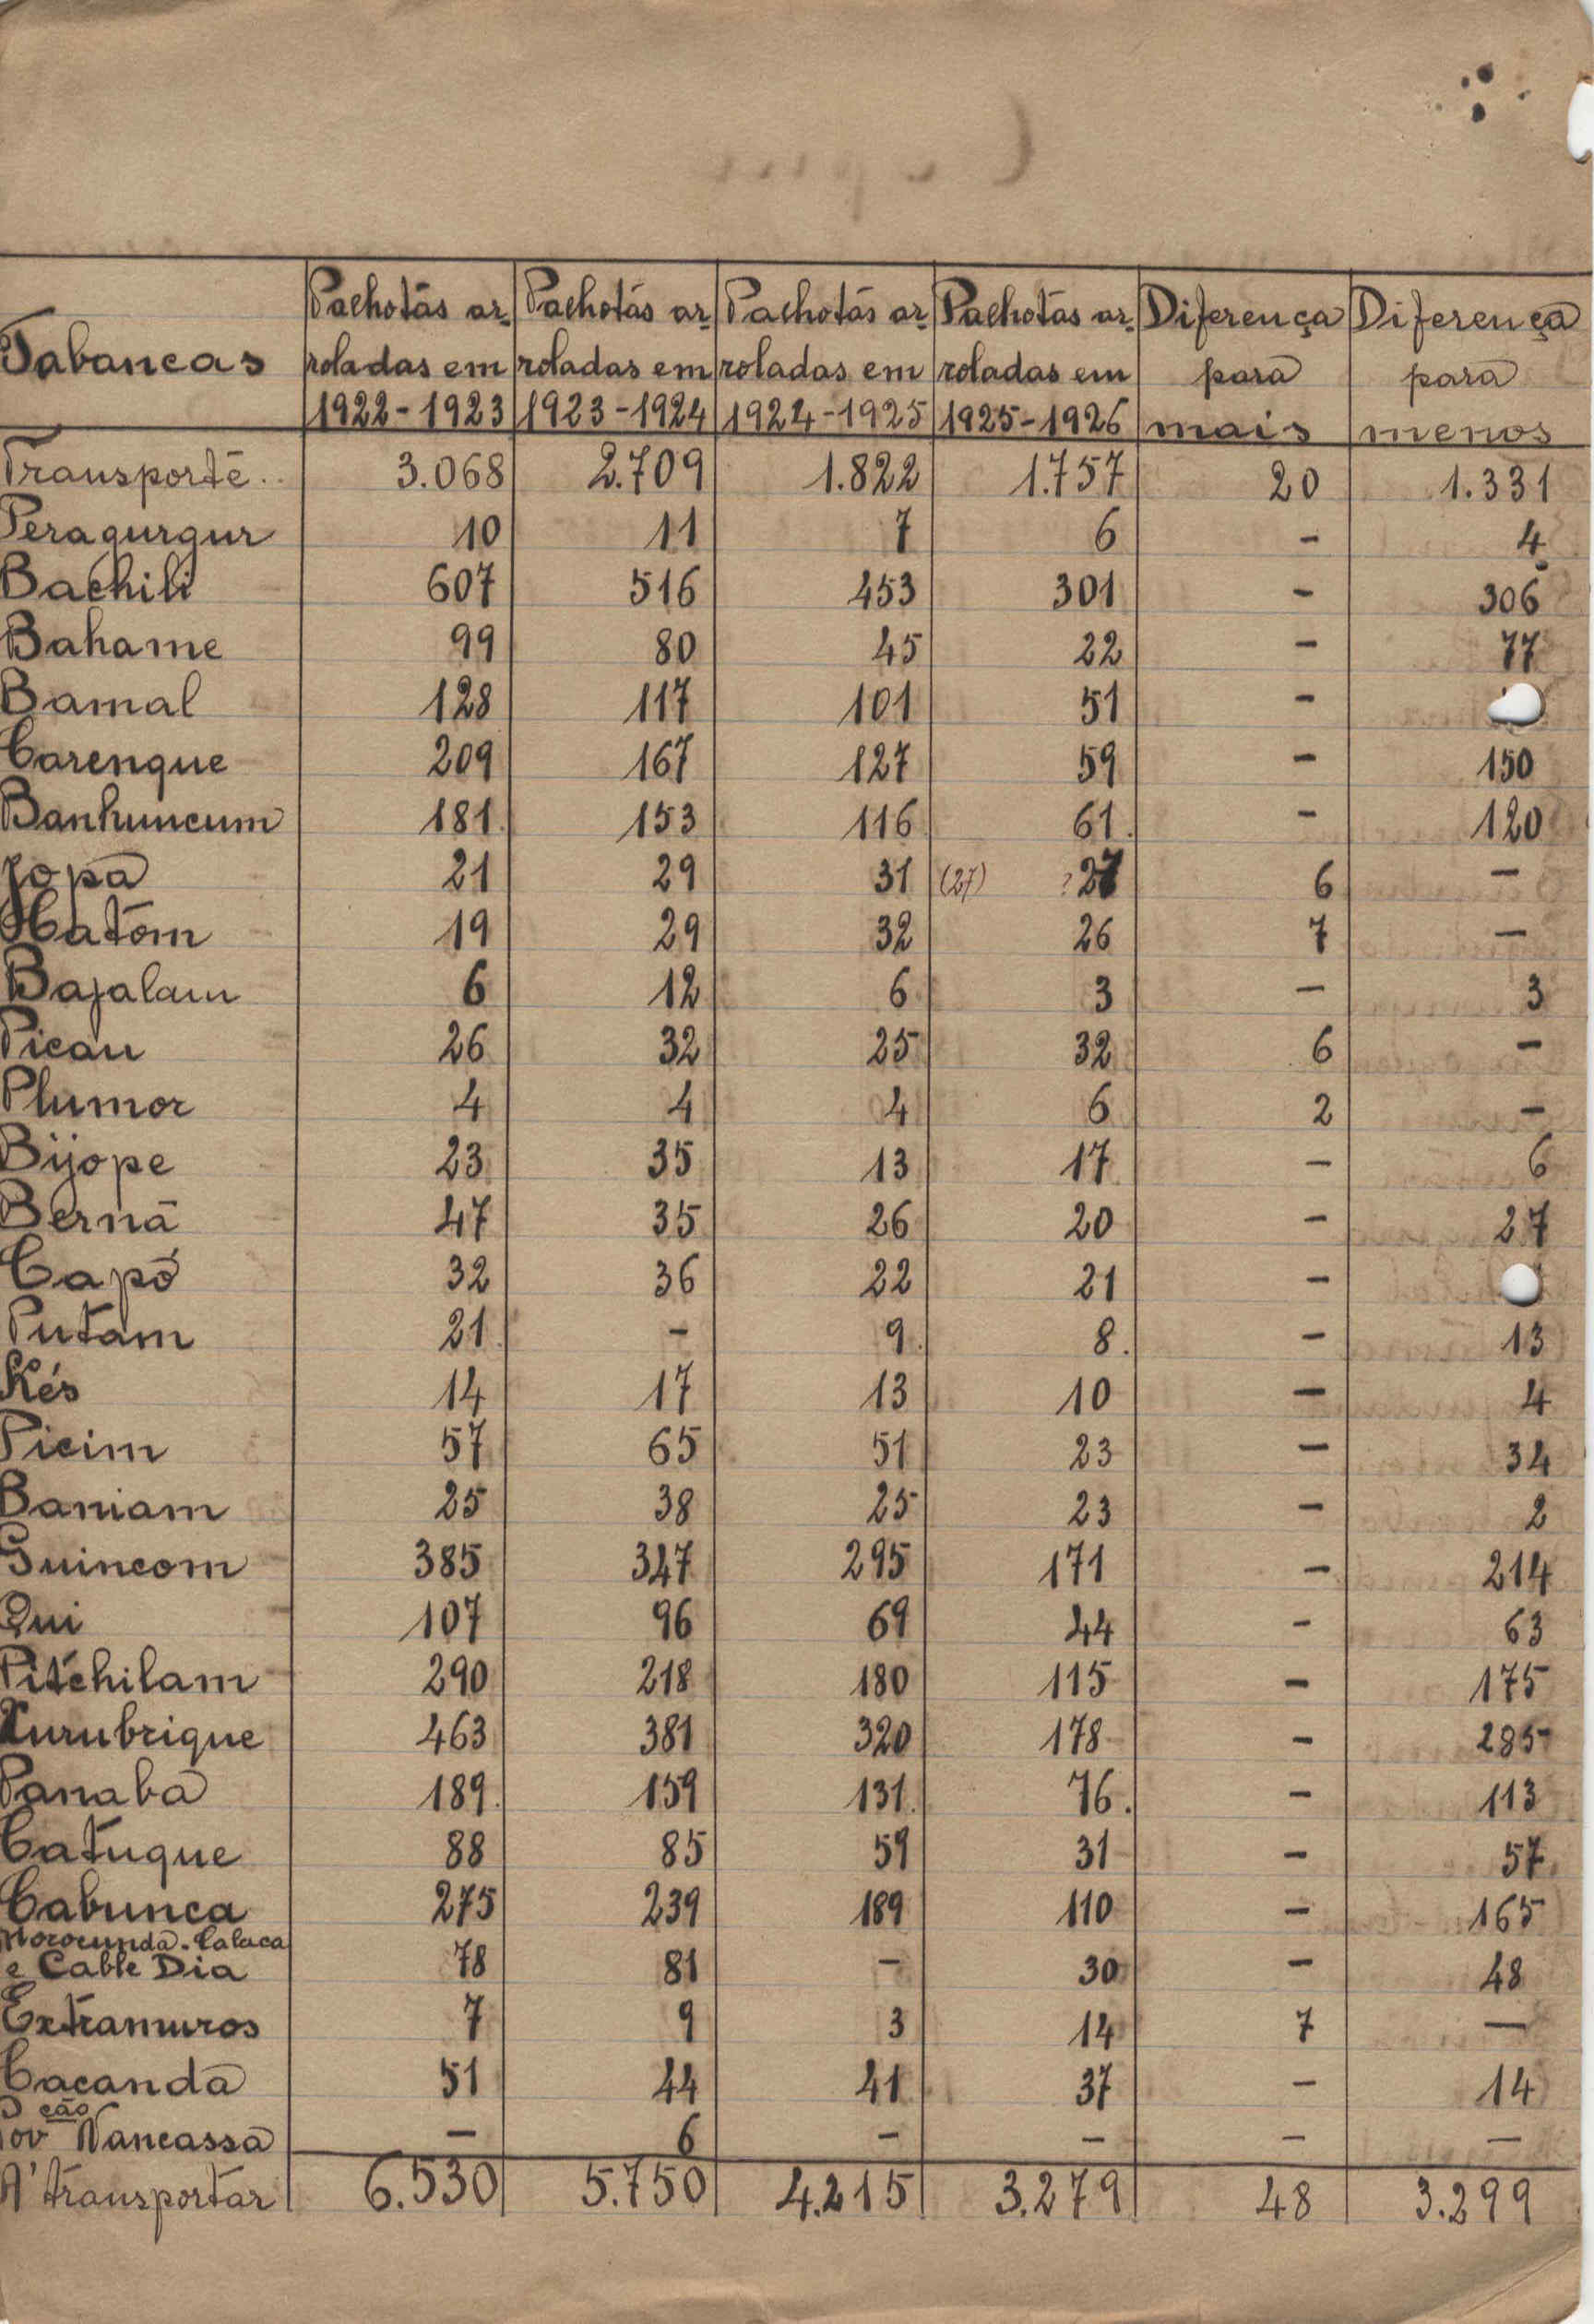 Tabancas | Palhotas ar- roladas em 1922-1923 | Palhotas ar- roladas em 1923-1924 | Palhotas ar- roladas em 1924-1925 | Palhotas ar- roladas em 1925-1926 | Diferença para mais | Diferença para menos
Transporte.. 3.068 2.709 1.822 1.757 20 1.331
Peragurgur 10 11 7 6 - 4
Bachili 607 516 453 301 - 306
Bahame 99 80 45 22 - 77
Bamal 128 117 101 51 -
Carenque 209 167 127 59 - 150
Banhuncum 181 153 116 61 - 120
Jopá 21 29 31 (27) ?27 6 -
Hatom 19 29 32 26 7 -
Bajalam 6 12 6 3 - 3
Picau 26 32 25 32 6 -
Plumor 4 4 4 6 2 -
Bijope 23 35 13 17 - 6
Berná 47 35 26 20 - 27
Capó 32 36 22 21 -
Putam 21 - 9 8 - 13
Kés 14 17 13 10 - 4
Picim 57 65 51 23 - 34
Baniam 25 38 25 23 - 2
Guincom 385 347 295 171 - 214
Qui 107 96 69 44 - 63
Pitchilam 290 218 180 115 - 175
Xurubrique 463 381 320 178 - 285
Panabá 189 159 131 76 - 113
Catuque 88 85 59 31 - 57
Cabunca 275 239 189 110 - 165
Morocunda. Calaca
e Cable Dia 78 81 - 30 - 48
Extramuros 7 9 3 14 7 -
Cacanda 51 44 41 37 - 14
Povção Nancassa - 6 - - - -
A' transportar 6.530 5.750 4.215 3.279 48 3.299